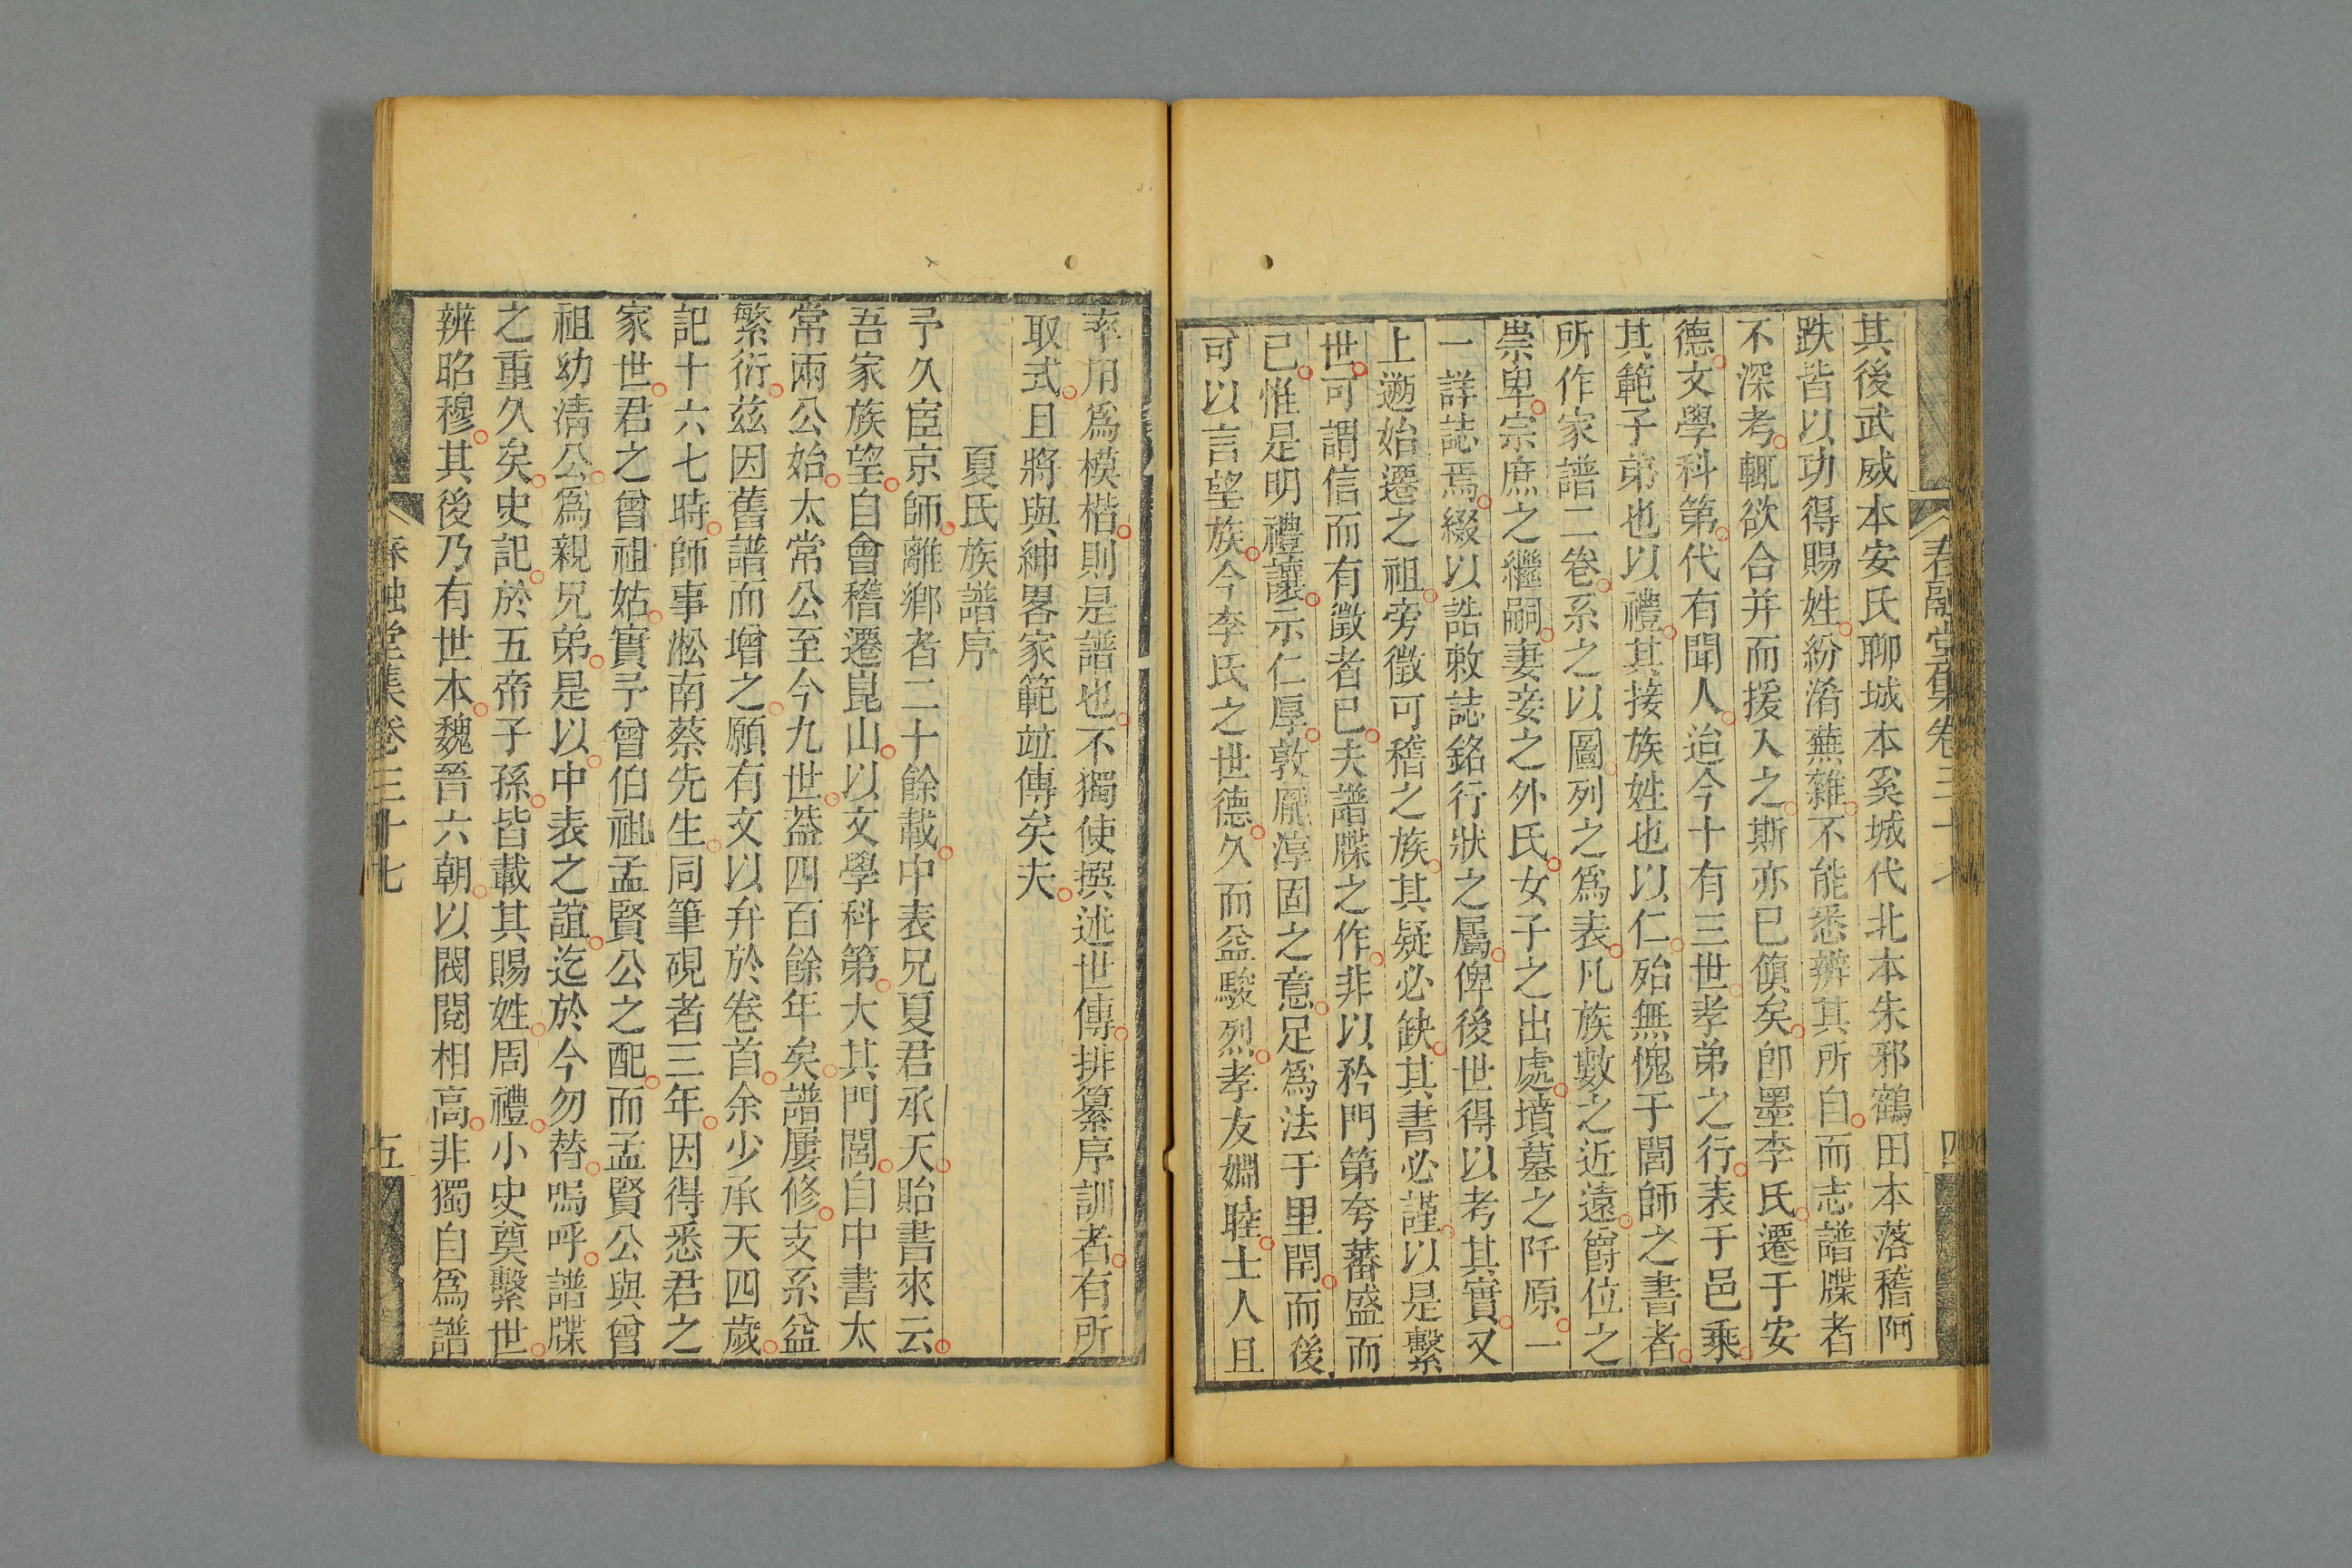 春融堂集卷三十七 四
其後武威本安氏聊城本奚城代北本朱邪鶴田本落稽阿
跌皆以功得賜姓紛淆蕪雜不能悉辨其所自而志譜牒者
不深考輒欲合并而援入之斯亦已傎矣卽墨李氏遷于安
德文學科第代有聞人迨今十有三世孝弟之行表于邑乘
其範子弟也以禮其接族姓也以仁殆無愧于閭師之書者
所作家譜二卷系之以圖列之爲表凡族數之近遠爵位之
崇卑宗庶之繼嗣妻妾之外氏女子之出處墳墓之阡原一
一詳誌焉綴以誥敕誌銘行狀之屬俾後世得以考其實又
上遡始遷之祖旁徵可稽之族其疑必缺其書必謹以是繫
世可謂信而有徵者已夫譜牒之作非以矜門第夸蕃盛而
已惟是明禮讓示仁厚敦龐淳固之意足爲法于里閈而後
可以言望族今李氏之世德久而益駿烈孝友婣睦士人且
率用爲模楷則是譜也不獨使撰述世傳排纂序訓者有所
取式且將與紳畧家範竝傳矣夫
夏氏族譜序
予久宦京師離鄉者二十餘載中表兄夏君承天貽書來云
吾家族望自會稽遷崑山以文學科第大其門閭自中書太
常兩公始太常公至今九世葢四百餘年矣譜屢修支系益
繁衍茲因舊譜而增之願有文以弁於卷首余少承天四歲
記十六七時師事淞南蔡先生同筆硯者三年因得悉君之
家世君之曾祖姑實予曾伯祖孟賢公之配而孟賢公與曾
祖幼清公爲親兄弟是以中表之誼迄於今勿替嗚呼譜牒
之重久矣史記於五帝子孫皆載其賜姓周禮小史奠繫世
辨昭穆其後乃有世本魏晉六朝以閥閱相高非獨自爲譜
春融堂集卷三十七 五